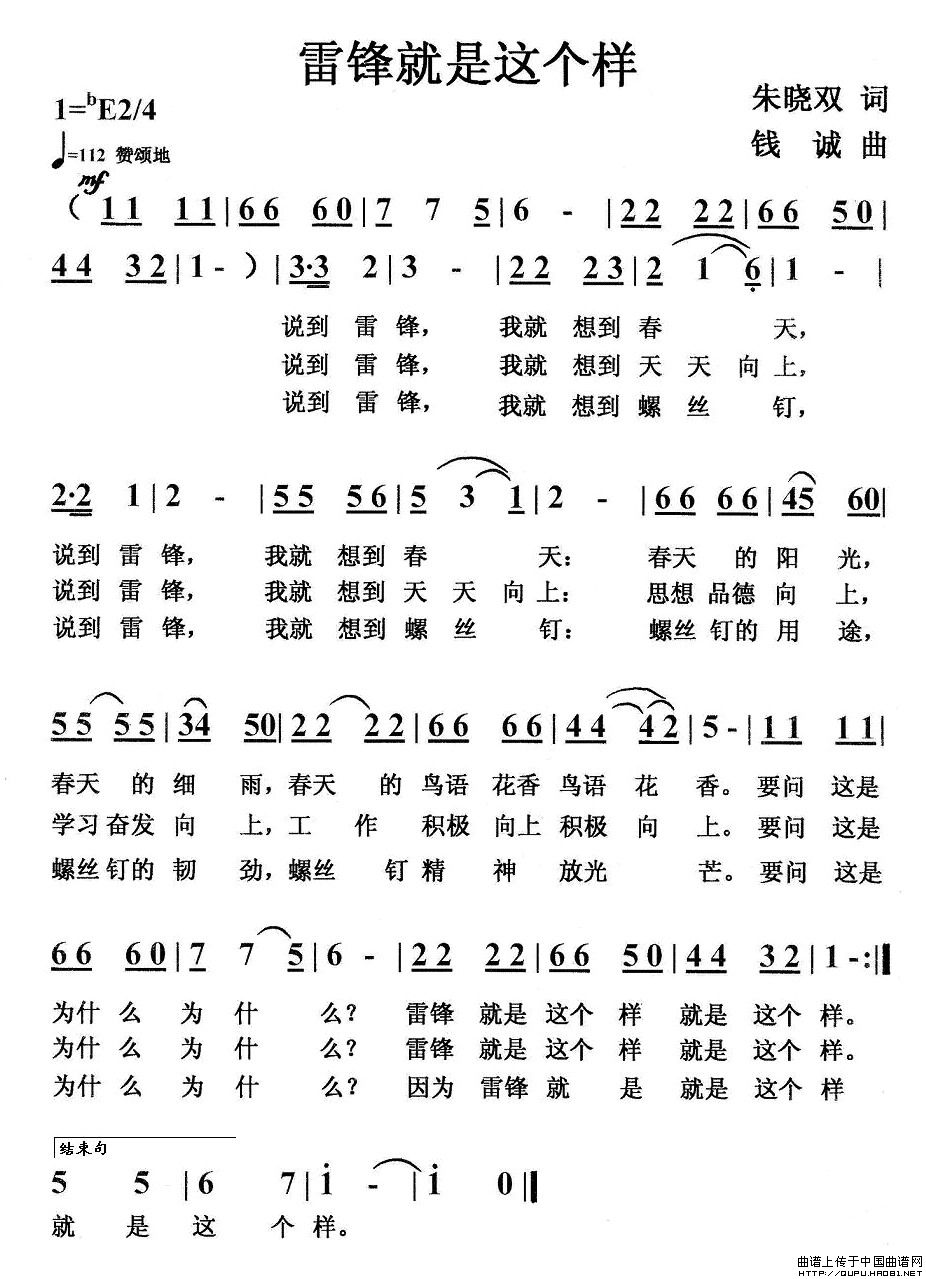 雷锋就是这个样
1=ᵇE2/4
朱晓双 词
♩=112 赞颂地
钱 诚 曲
mf
（11 11|66 60|7 7 5|6 -|22 22|66 50|
44 32|1-）|3·3 2|3 -|22 23|2 1 6̣|1 -|
说到 雷 锋， 我就 想到 春 天，
说到 雷 锋， 我就 想到 天 天 向 上，
说到 雷 锋， 我就 想到 螺 丝 钉，
2·2 1|2 -|55 56|5 3 1|2 -|66 66|45 60|
说到 雷 锋， 我就 想到 春 天： 春天 的 阳 光，
说到 雷 锋， 我就 想到 天 天 向 上： 思想 品德 向 上，
说到 雷 锋， 我就 想到 螺 丝 钉： 螺丝 钉的 用 途，
55 55|34 50|22 22|66 66|44 42|5-|11 11|
春天 的 细 雨，春天 的 鸟语 花香 鸟语 花 香。要问 这是
学习 奋发 向 上，工 作 积极 向上 积极 向 上。要问 这是
螺丝 钉的 韧 劲，螺丝 钉 精 神 放光 芒。要问 这是
66 60|7 7 5|6 -|22 22|66 50|44 32|1-:‖
为什 么 为 什 么？ 雷锋 就是 这个 样 就是 这个 样。
为什 么 为 什 么？ 雷锋 就是 这个 样 就是 这个 样。
为什 么 为 什 么？ 因为 雷锋 就 是 就是 这个 样
结束句
5 5|6 7|i -|i 0‖
就 是 这 个 样。
曲谱上传于中国曲谱网
HTTP://QUPU.HAO81.NET